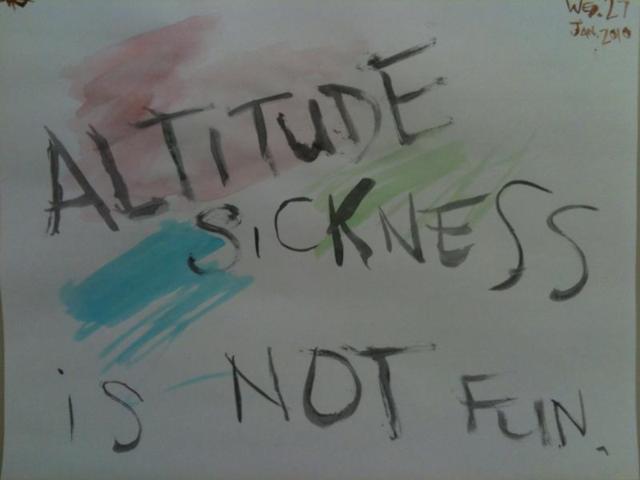 WED. 27
JAN. 2010
ALTITUDE
SICKNESS
is NOT FUN.